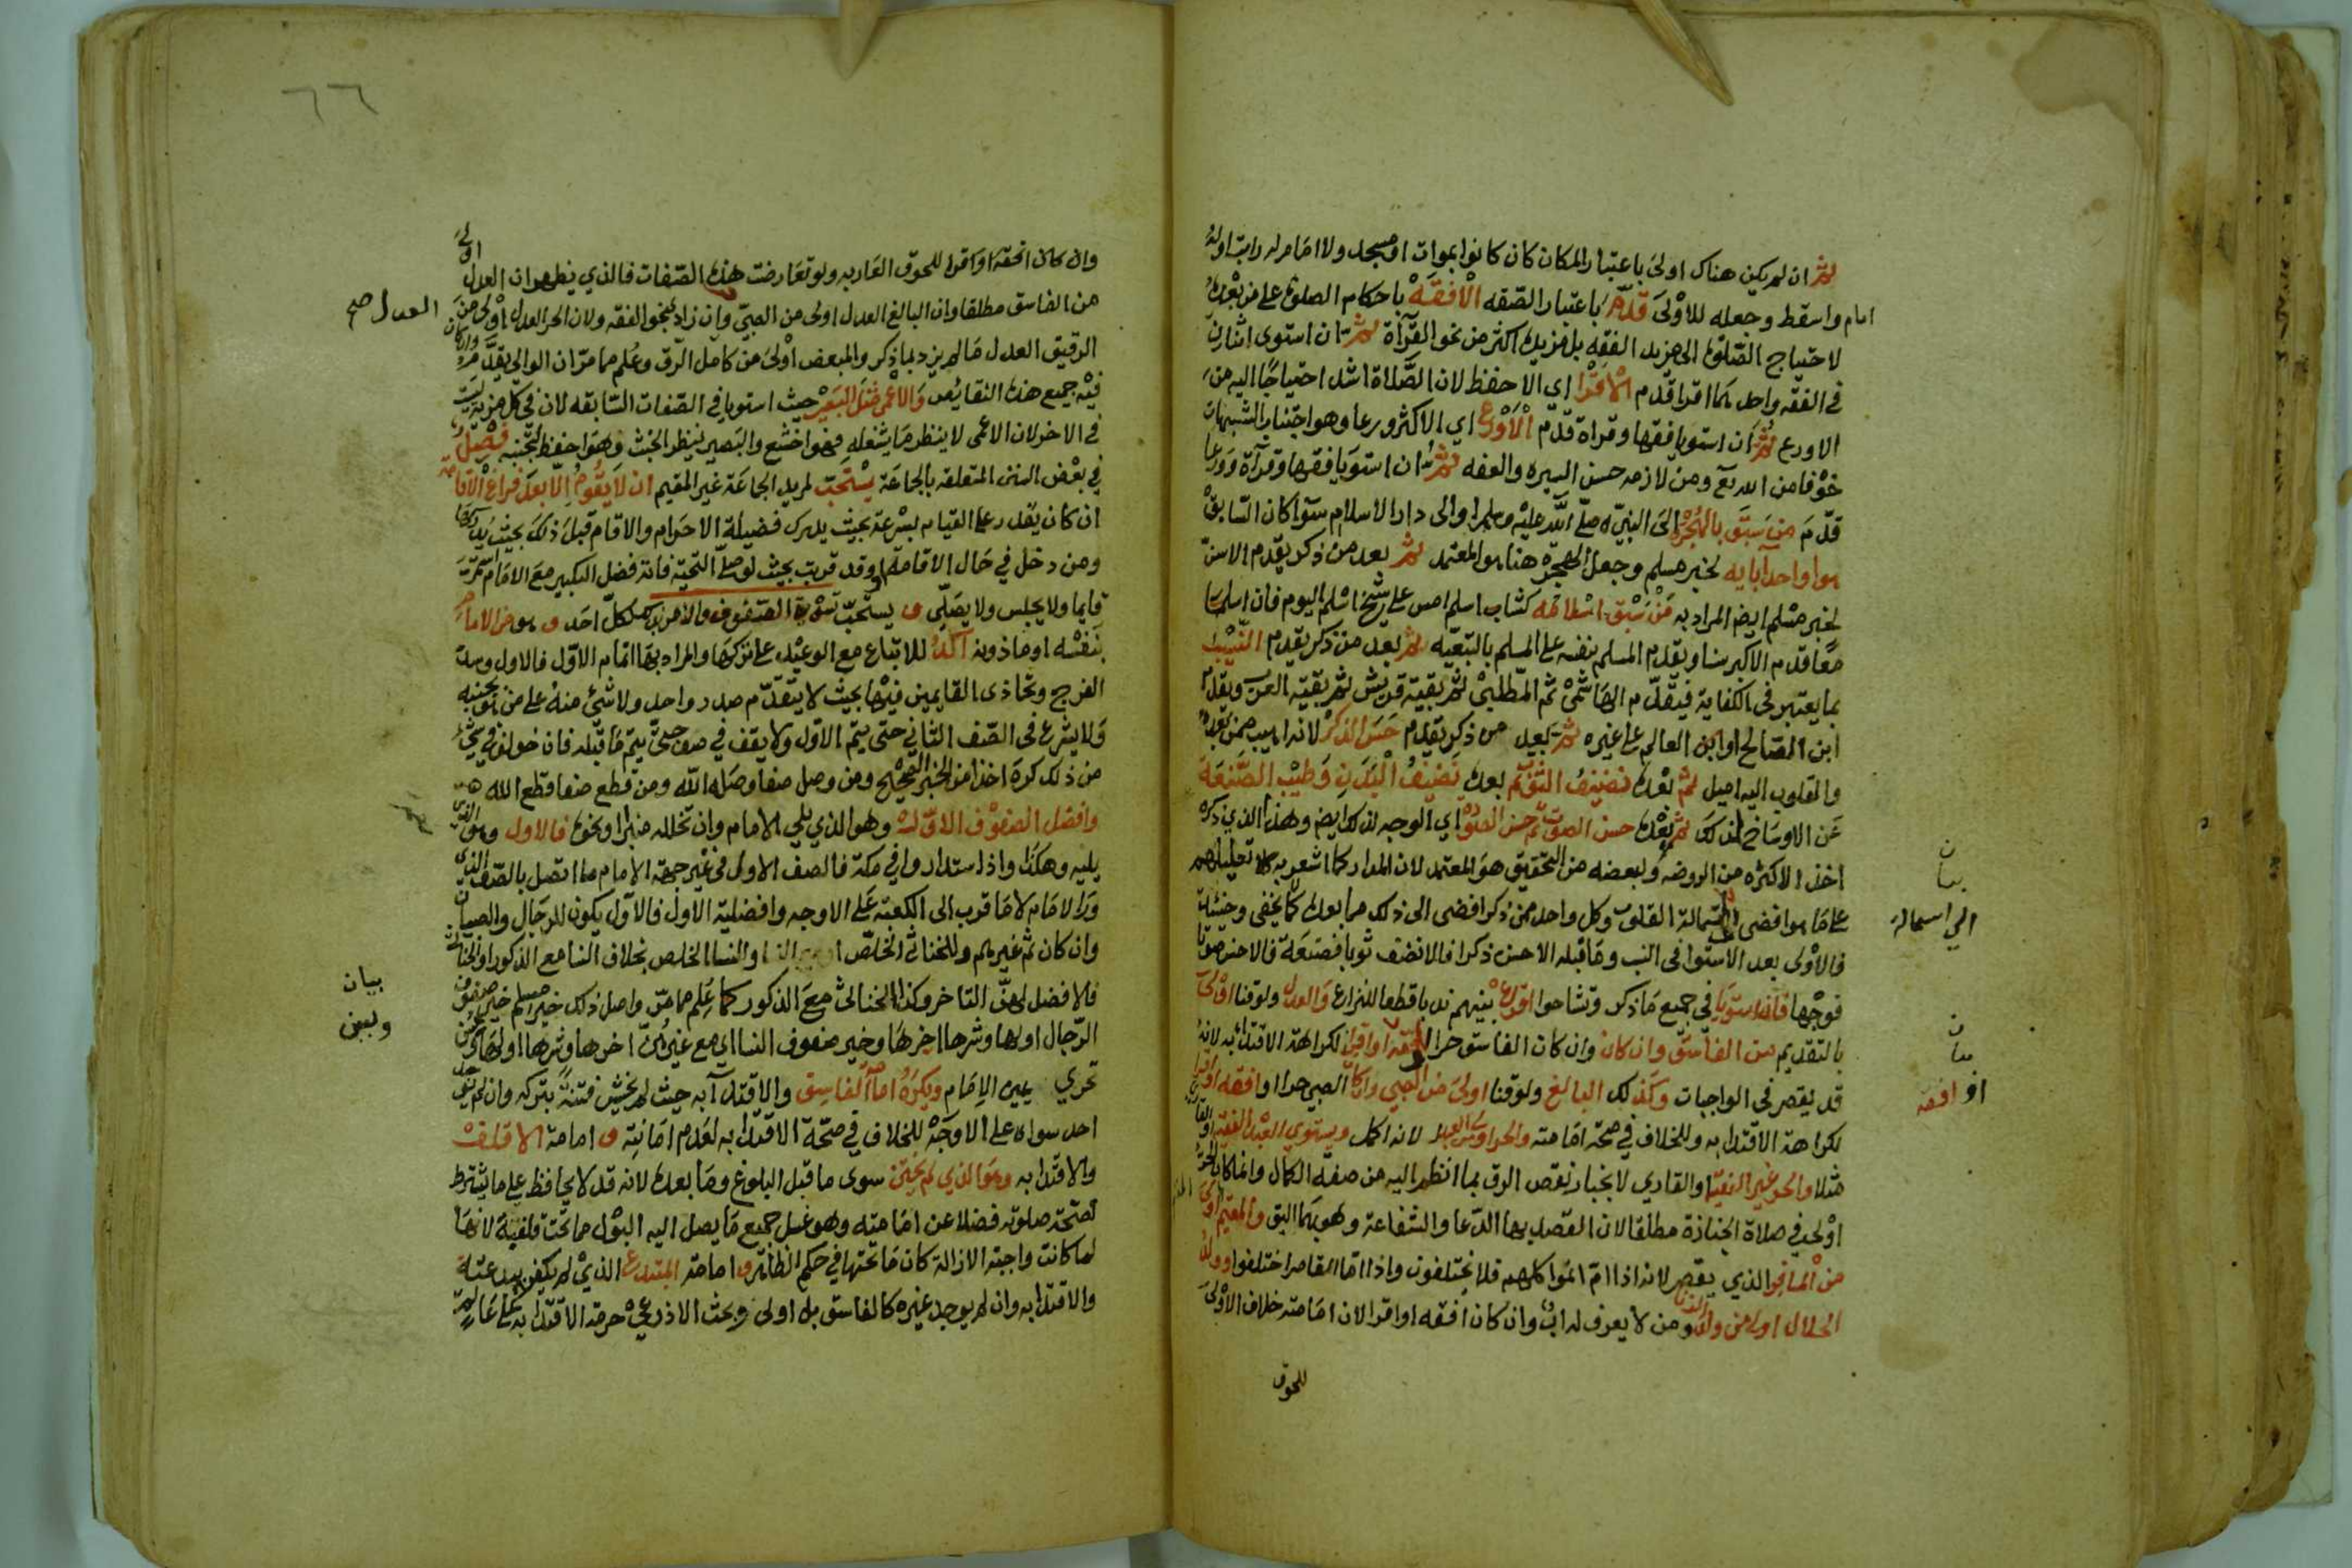 ثم ان لم يكن هناك اولى باعتبار المكان كان كانوا بموات او مسجد ولا امام له راتب اوله
امام واسقط وجعله للاولى قدم باعتبار الصفه الافقه باحكام الصلوة على من بعده
لاحتياج الصلوة الى مزيد الفقه بل مزيده اكثر من نحو القرآة ثم ان استوى اثنان
في الفقه واحدهما اقرا قدم الاقرا اي الاحفظ لان الصلاة اشد احتياجا اليه من
الاورع ثم ان استويا فقها وقراة قدم الاورع اي الاكثر ورعا وهو اجتناب الشبهات
خوفا من الله تع ومن لازمه حسن السيره والعفه ثم ان استويا فقها وقرآة وورعا
قدم من سبق بالهجرة الى النبي صلى الله عليه وسلم او الى دار الاسلام سوآ كان السابق
هو او احد آبايه لخبر مسلم وجعل الهجرة هنا هو المعتمد ثم بعد من ذكر يقدم الاسن
لخبر مسلم ايضا المراد به من سبق اسلامه كشاب اسلم امس على شيخ اسلم اليوم فان اسلما
معا قدم الاكبر سنا ويقدم المسلم بنفسه على المسلم بالتبعيه ثم بعد من ذكر يقدم النسيب
بما يعتبر في الكفاية فيقدم الهاشمي ثم المطلبي ثم بقية قريش ثم بقية العرب ويقدم
ابن الصالح او ابن العالم على غيره ثم بعد من ذكر يقدم حسن الذكر لانه اهيب ممن بعده
والقلوب اليه اميل ثم بعده نضيف الثوب ثم بعده نضيف البدن وطيب الصنعة
عن الاوساخ لذلك ثم بعده حسن الصوت ثم حسن الصورة اي الوجه لذلك ايضا وهذا الذي ذكره
اخذ الاكثره من الروضه ولبعضه من التحقيق هو المعتمد لان المدار كما اشعر به تعليلهم
على ما هو افضى استمالة القلوب وكل واحد ممن ذكر افضى الى ذلك مما بعده كما لا يخفى وحينئذ
فالاولى بعد الاستوا في النسب وما قبله الاحسن ذكرا فالانضف ثوبا فصنعة فالاحسن صوتا
فوجها فان استويا في جميع ما ذكر وتشاحوا اقرع بينهم ندبا قطعا للنزاع والعدل ولو قنا اولى
بالتقديم من الفاسق وان كان وان كان الفاسق حرا افقه او اقرا لكراهة الاقتدا به لانه
قد يقصر في الواجبات وكذلك البالغ ولو قنا اولى من الصبي وان كان الصبي حرا او افقه او اقرا
لكراهة الاقتدا به وللخلاف في صحة امامته والحر اولى من العبد لانه اكمل ويستوي العبد الفقيه او القاري
مثلا والحر غير الفقيه او القاري لانجبار نقص الرق بما انظم اليه من صفة الكمال وانما كان الحر
اولى في صلاة الجنازة مطلقا لان القصد بها الدعا والشفاعة وهو بهما اليق والمقيم اولى
من المسافر الذي يقصر لانه اذا ام اتموا كلهم فلا يختلفون واذا ام القاصر اختلفوا وولد
الحلال اولى من ولد الزنا ومن لا يعرف له اب وان كان افقه او اقرا لان امامته خلاف الاولى
للحوق
بيان
الي استمالة
بيان
او افقه
٦٦
وان كان افقه او اقرا للحوق العار به ولو تعارضت هذه الصفات فالذي يظهر ان العدل اولى
من الفاسق مطلقا وان البالغ العدل اولى من الصبي وان زاد بنحو الفقه ولان الحر العدل اولى من
الرقيق العدل ما لم يزد بما ذكر والمبعض اولى من كامل الرق وعلم مما مر ان الوالي يقدم وان كان
فيه جميع هذه النقايص والاعمى مثل البصير حيث استويا في الصفات السابقه لان في كل مزية ليست
في الاخر لان الاعمى لا ينظر ما يشغله فهو اخشع والبصير ينظر الخبث فهو احفظ لتجنبه فصل
في بعض السنن المتعلقه بالجماعة يستحب لمريد الجماعة غير المقيم ان لا يقوم الا بعد فراغ الاقامه
ان كان يقدر على القيام بسرعة بحيث يدرك فضيلة الاحرام والا قام قبل ذلك بحيث يدركها
ومن دخل في حال الاقامة او قد قربت بحيث لو صلى التحية فاته فضل التكبير مع الامام استمر
قايما ولا يجلس ولا يصلي و يستحب تسوية الصفوف والامر بذلك لكل احد و هو من الامام
بنفسه او ماذونه آكد للاتباع مع الوعيد على تركها والمراد بها اتمام الاول فالاول وسد
الفرج وتحاذى القايمين فيها بحيث لا يتقدم صدر واحد ولا شئ منه على من هو بجنبه
ولا يشرع في الصف الثاني حتى يتم الاول ولا يقف في صف حتى يتم ما قبله فان خولف في شئ
من ذلك كره اخذا من الخبر الصحيح ومن وصل صفا وصله الله ومن قطع صفا قطعه الله
وافضل الصفوف الاول وهو الذي يلي الامام وان تخلله منبر او نحوه فالاول وهو الذي
يليه وهكذا واذا استداروا في مكة فالصف الاول في غير جهة الامام ما اتصل بالصف الذي
ورا الامام لا ما قرب الى الكعبة على الاوجه وافضلية الاول فالاول يكون للرجال والصبيان
وان كان ثم غيرهم وللخناثى الخلص والنسا الخلص بخلاف النسا مع الذكور او الخناثى
فالافضل لهن التاخر وكذا الخناثى مع الذكور كما علم مما مر واصل ذلك خبر مسلم خير صفوف
الرجال اولها وشرها اخرها وخير صفوف النسا اي مع غيرهن اخرها وشرها اولها
تحري يمين الامام ويكره امامة الفاسق والاقتدا به حيث لم يخش فتنة بتركه وان لم يوجد
احد سواه على الاوجه للخلاف في صحة الاقتدا به لعدم امانته و امامة الاقلف
والاقتدا به وهو الذي لم يختن سوى ما قبل البلوغ وما بعده لانه قد لا يحافظ على ما يشترط
لصحة صلوته فضلا عن امامته وهو غسل جميع ما يصل اليه البول مما تحت قلفته لانها
لما كانت واجبة الازالة كان ما تحتها في حكم الظاهر و امامة المبتدع الذي لم يكفر ببدعته
والاقتدا به وان لم يوجد غيره كالفاسق بل اولى وبحث الاذرعي حرمة الاقتدا به على عالم
العدل صح
بيان
وبين